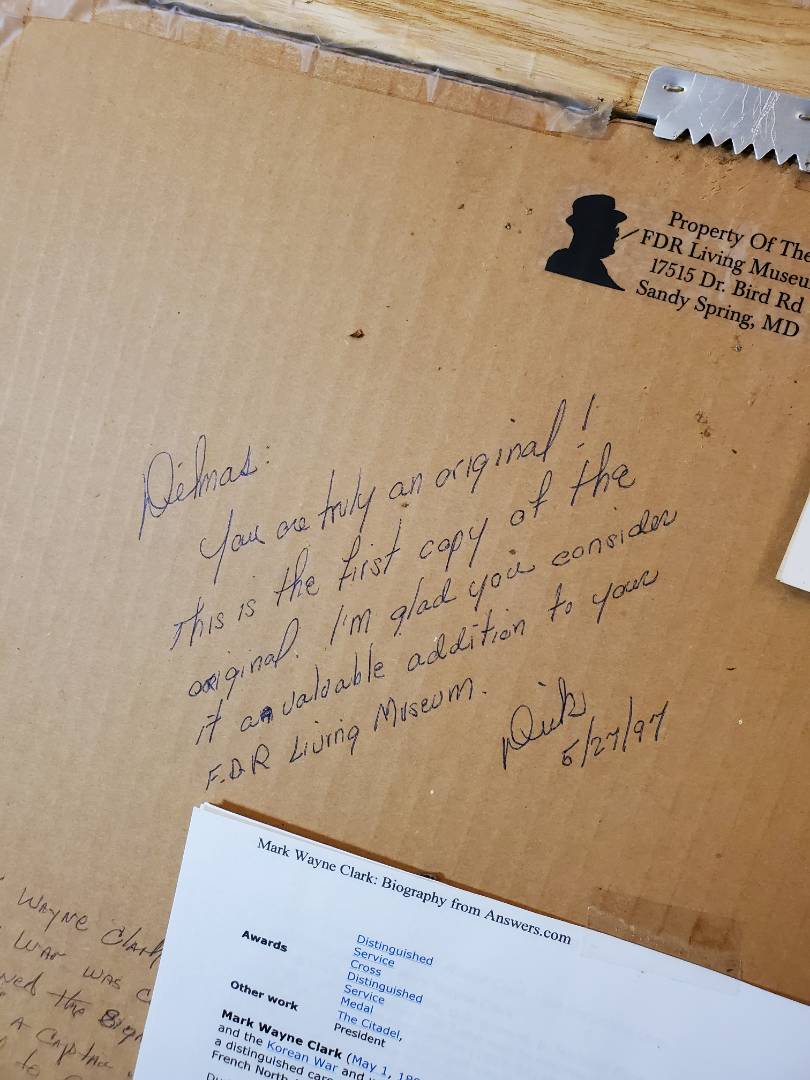 Property Of The
FDR Living Museu
17515 Dr. Bird Rd
Sandy Spring, MD
Delmas:
You are truly an original!
This is the first copy of the
original. I'm glad you consider
it a valuable addition to your
F.D.R Living Museum.
Dick
5/27/97
Mark Wayne Clark: Biography from Answers.com
Awards
Distinguished
Service
Cross
Distinguished
Service
Medal
Other work
The Citadel,
President
Mark Wayne Clark (May 1, 18
and the Korean War and
a distinguished care
French North
Wayne Clark
War was
the
A Captain
to